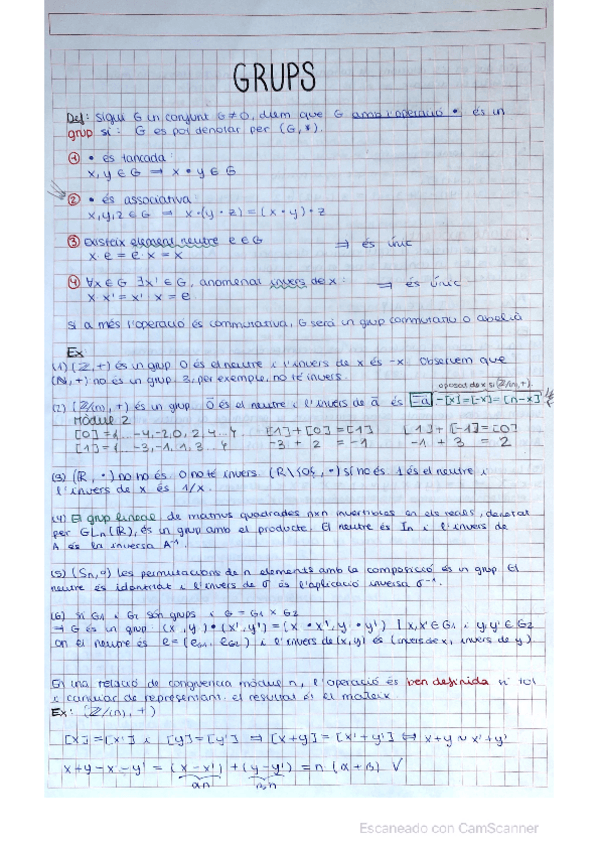 GRUPS
Def: Sigui G un conjunt G≠∅, diem que G amb l'operació • és un
grup si: G es pot denotar per (G, *).
① • és tancada:
x, y ∈ G ⟹ x • y ∈ G
② • és associativa
x, y, z ∈ G ⟹ x•(y•z)=(x•y)•z
③ existeix element neutre e ∈ G ⟹ és únic
x·e = e·x = x
④ ∀x∈G ∃x'∈G, anomenat invers de x: ⟹ és únic
x·x' = x'·x = e
Si a més l'operació és commutativa, G serà un grup commutatiu o abelià
Ex
(1) (ℤ,+) és un grup 0 és el neutre i l'invers de x és -x. Observem que
(ℕ,+) no és un grup. 3, per exemple, no té invers.
oposat de x si (ℤ/(n),+)
(2) (ℤ/(n),+) és un grup 0̄ és el neutre i l'invers de ā és -a -[x]=[-x]=[n-x]
Mòdul 2
[0]={... -4,-2,0,2,4...} [1]+[0]=[1] [1]+[-1]=[0]
[1]={... -3,-1,1,3...} -3 + 2 = -1 -1 + 3 = 2
(3) (ℝ, •) no ho és 0 no té invers. (ℝ\{0}, •) sí ho és 1 és el neutre i
l'invers de x és 1/x.
(4) El grup lineal de matrius quadrades n×n invertibles en els reals, denotat
per GLn(ℝ), és un grup amb el producte. El neutre és In i l'invers de
A és la inversa A⁻¹.
(5) (Sn,∘) les permutacions de n elements amb la composició és un grup El
neutre és identitat i l'invers de σ és l'aplicació inversa σ⁻¹.
(6) Si G1 i G2 són grups i G = G1 × G2
⟹ G és un grup (x,y)•(x',y')=(x•x', y•y') | x,x'∈G1 i y,y'∈G2
on el neutre és e=(eG1, eG2) i l'invers de (x,y) és (invers de x, invers de y).
En una relació de congruència mòdul n, l'operació és ben definida si tot
i canviar de representant el resultat és el mateix.
Ex: (ℤ/(n), +)
[x]=[x'] i [y]=[y'] ⟹ [x+y]=[x'+y'] ⟺ x+y ~ x'+y'
x+y-x'-y' = (x-x')+(y-y')= n(α+β) √
αn βn
Escaneado con CamScanner